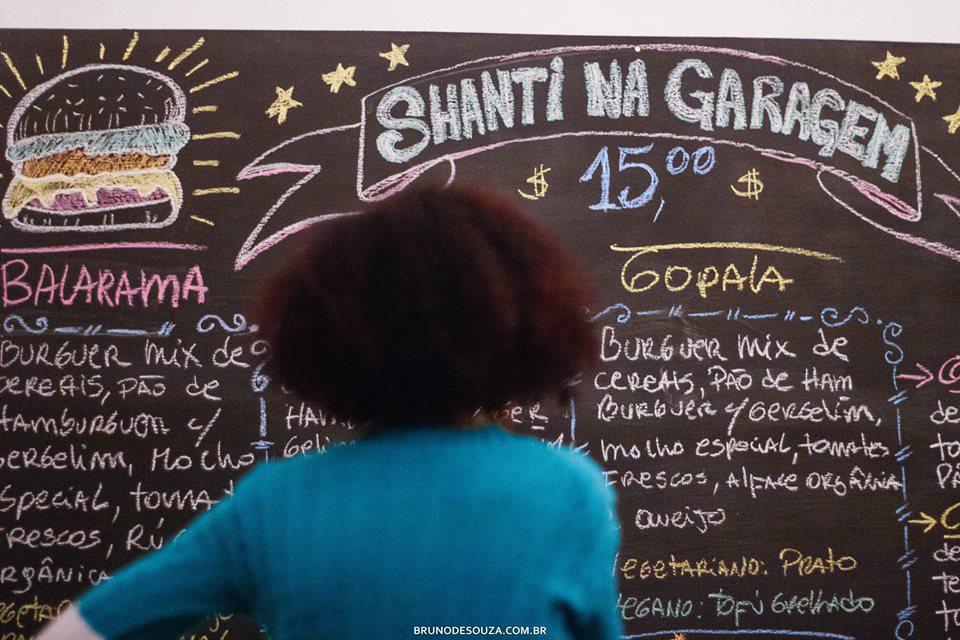 SHANTI NA GARAGEM
$ 15,00 $
BALARAMA
BURGUER MIX DE
CEREAIS, PÃO DE
HAMBURGUER C/
GERGELIM, MOLHO
ESPECIAL, TOMAT
FRESCOS, RÚ
ORGÂNICA
VEGETA
GOPALA
BURGUER MIX DE
CEREAIS, PÃO DE HAM
BURGUER C/ GERGELIM,
MOLHO ESPECIAL, TOMATES
FRESCOS, ALFACE ORGÂNICA
QUEIJO
VEGETARIANO: PRATO
VEGANO: TOFU GRELHADO
de
to
de
BRUNODESOUZA.COM.BR